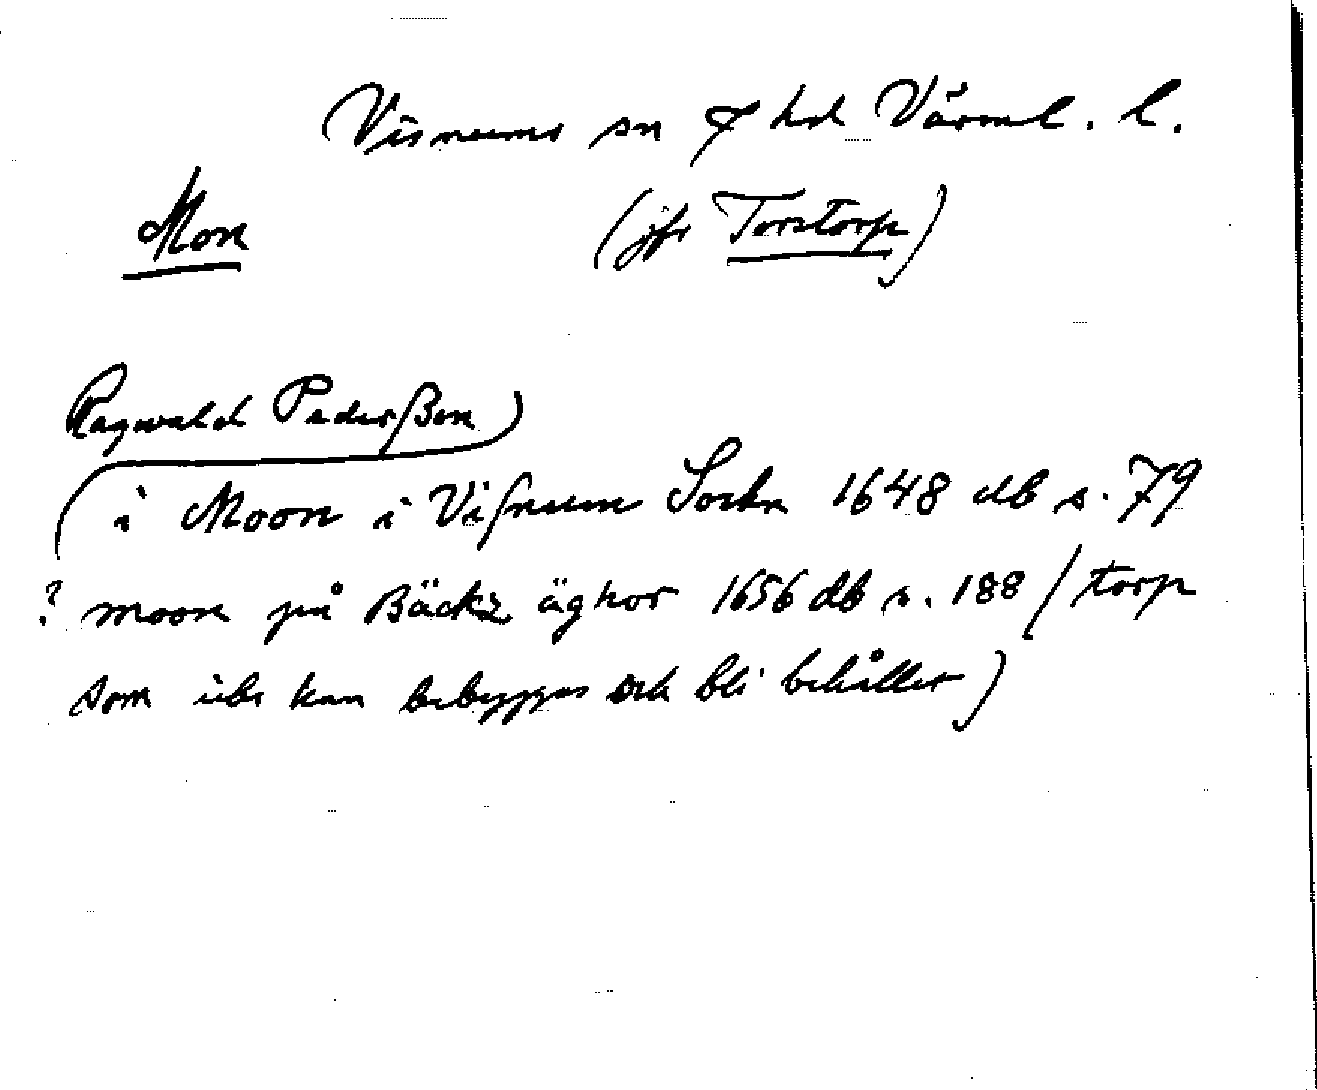 Visnums sn & hd Värml. l.
Mon (jfr Torstorp)
Ragwald Pederßon)
(i Moon i Visnum Sockn 1648 db s. 79
? moon på Bäckz äghor 1656 db s. 188 / torp
som icke kan bebygges och bli behållet)